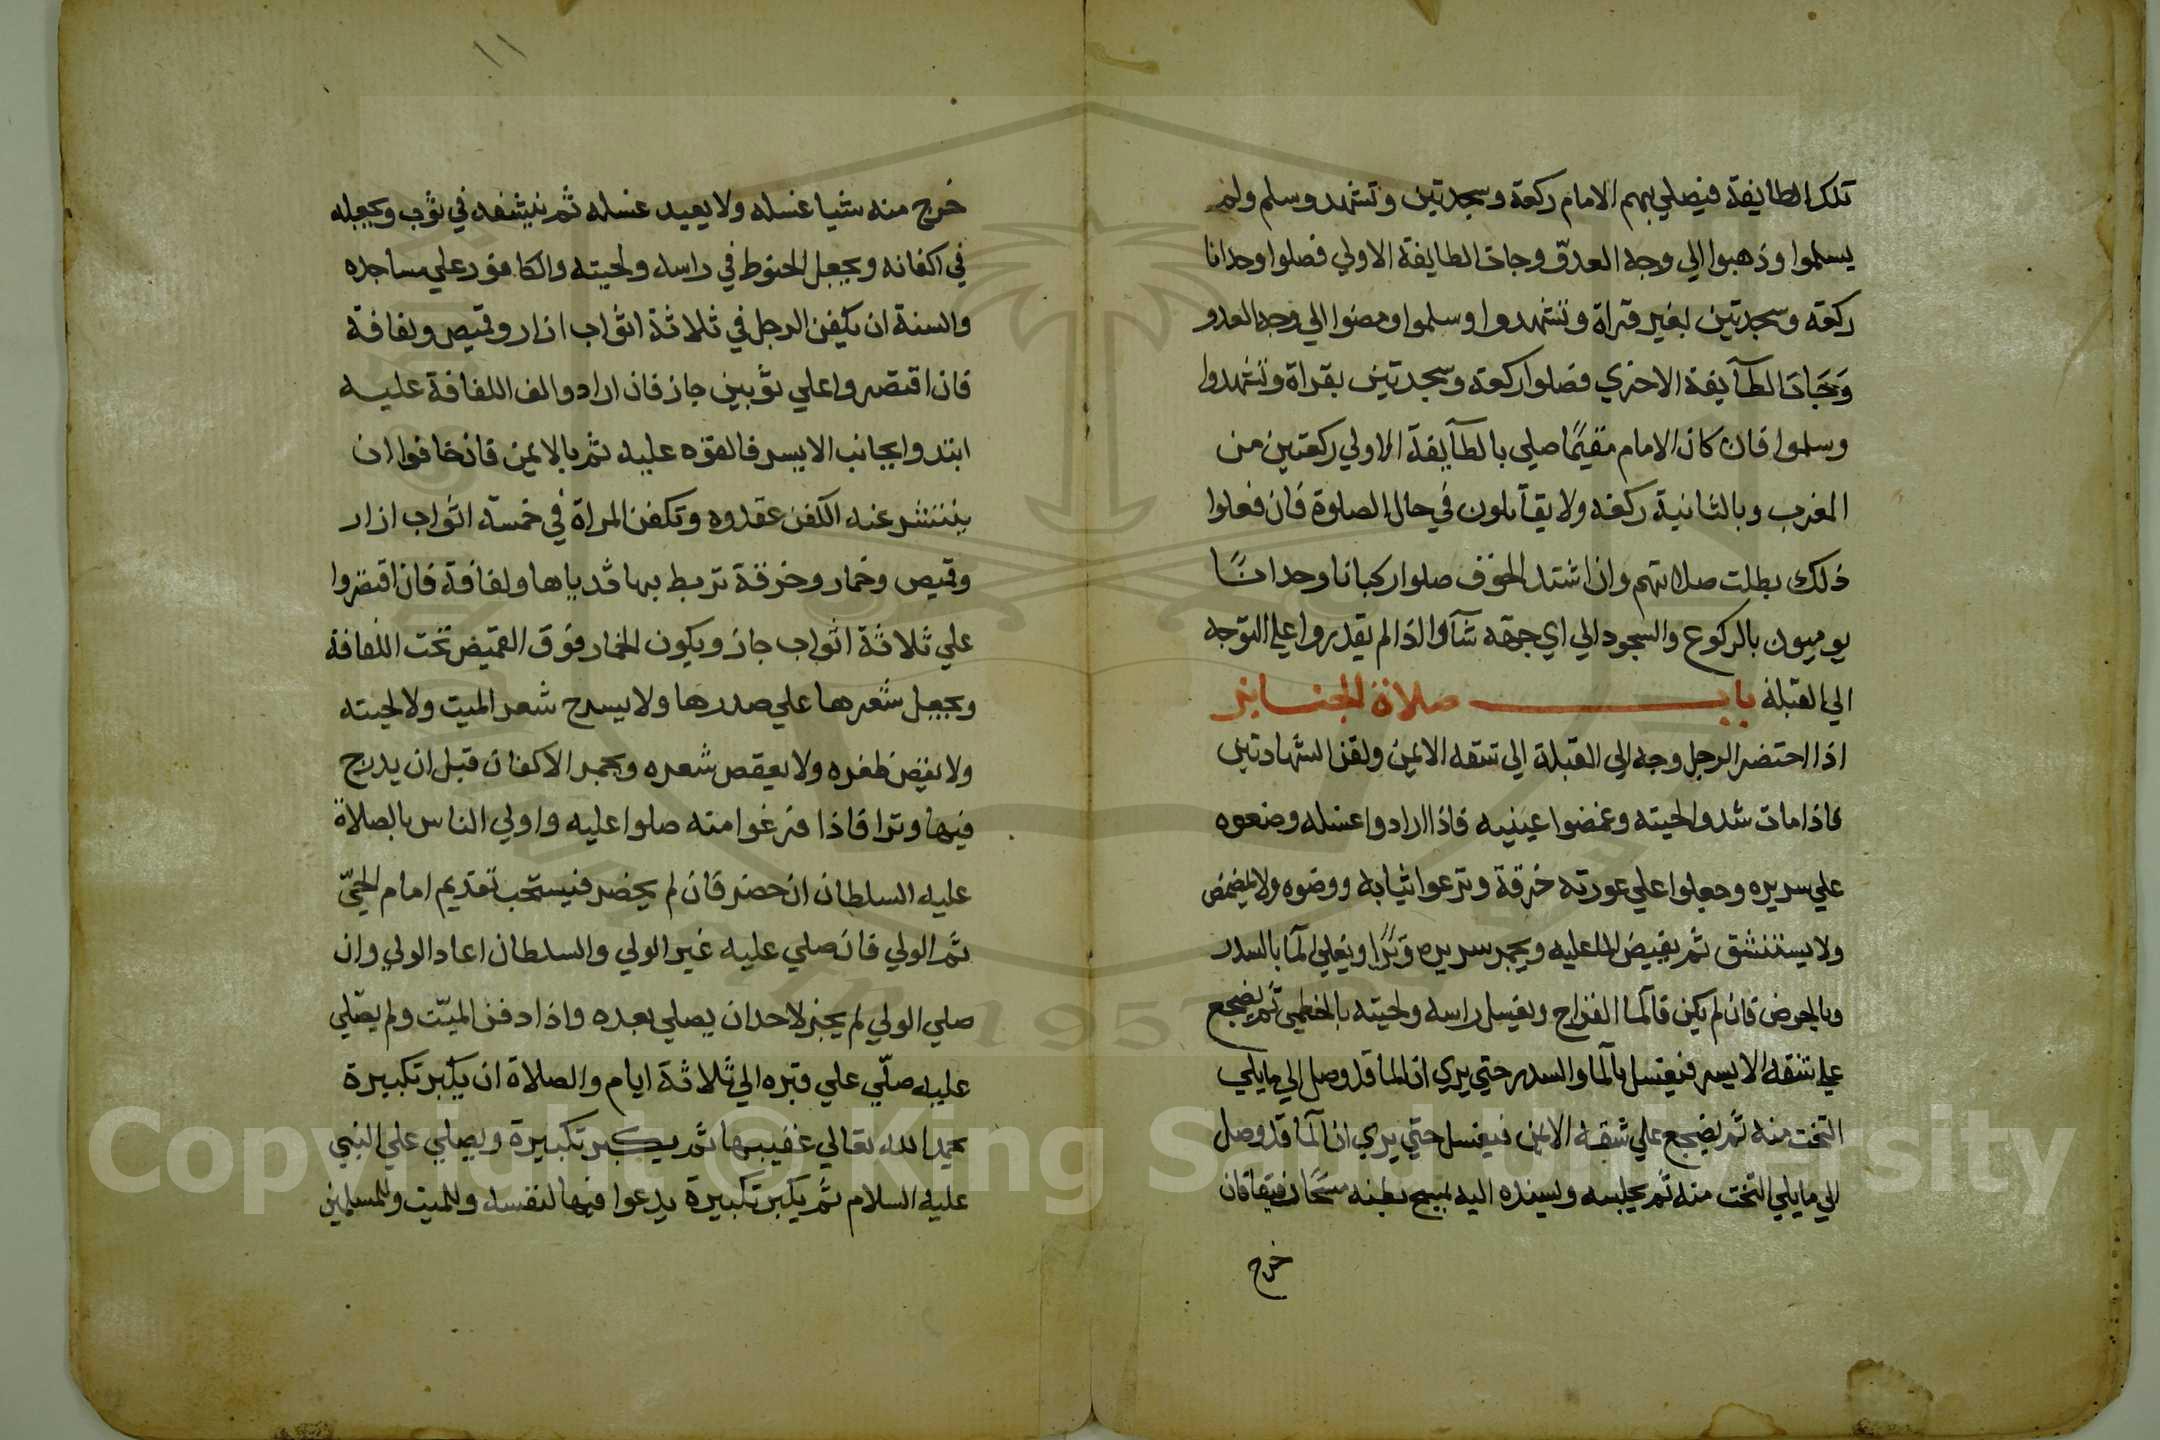 تلك الطايفة فيصلي بهم الامام ركعة وسجدتين وتشهد وسلم ولم
يسلموا وذهبوا الي وجه العدوّ وجات الطايفة الاولي فصلوا وحدانا
ركعة وسجدتين بغير قراة وتشهدوا وسلموا ومضوا الي وجه العدو
وَجَات الطآيفة الاخري فصلوا ركعة وسجدتين بقراة وتشهدوا
وسلموا فان كان الامام مقيمًا صلي بالطآيفة الاولي ركعتين من
المغرب وبالثانية ركعة ولا يقآتلون في حال الصلوة فان فعلوا
ذلك بطلت صلاتهم وان اشتد الخوف صلوا ركبانا وحدانًا
يوميون بالركوع والسجود الي اي جهة شآوا اذا لم يقدروا علي التوجه
الي القبلة باب صلاة الجنايز
اذا احتضر الرجل وجه الي القبلة الي شقه الايمن ولقن الشهادتين
فاذا مات شدوا لحيته وغمضوا عينيه فاذا ارادوا غسله وضعوه
علي سريره وجعلوا علي عورته خرقة ونزعوا ثيابه ووضوه ولا يمضمض
ولا يستنشق ثم يفيض الما عليه ويجمر سريره وترًا ويغلي المآ بالسدر
وبالحرض فان لم يكن فالمآ القراح ويغسل راسه ولحيته بالخطمي ثم يضجع
علي شقه الايسر فيغسل بالمآ والسدر حتي يري ان الما قد وصل الي ما يلي
التخت منه ثم يضجع علي شقه الايمن فيغسل حتي يري ان المآ قد وصل
الي ما يلي التخت منه ثم يجلسه ويسنده اليه يمسح بطنه مسحًا رفيقا فان
خرج
١١
خرج منه شيا غسله ولا يعيد غسله ثم ينشفه في ثوب ويجعله
في اكفانه ويجعل الحنوط في راسه ولحيته والكافور علي مساجده
والسنة ان يكفن الرجل في ثلاثة اثواب ازار وقميص ولفافة
فان اقتصروا علي ثوبين جاز فان ارادوا لف اللفافة عليه
ابتدوا بجانب الايسر فالقوه عليه ثم بالايمن فان خافوا ان
ينتشر عنه الكفن عقدوه وتكفن المراة في خمسة اثواب ازار
وقميص وخمار وخرقة تربط بها ثدياها ولفافة فان اقتصروا
علي ثلاثة اثواب جاز ويكون الخمار فوق القميص تحت اللفافة
ويجعل شعرها علي صدرها ولا يسرح شعر الميت ولا لحيته
ولا يقص ظفره ولا يعقص شعره ويجمر الاكفان قبل ان يدرج
فيها وترا فاذا فرغوا منه صلوا عليه واولي الناس بالصلاة
عليه السلطان ان حضر فان لم يحضر فيستحب تقديم امام الحيّ
ثم الولي فان صلي عليه غير الولي والسلطان اعاد الولي وان
صلي الولي لم يجز لاحد ان يصلي بعده واذا دفن الميّت ولم يصّلي
عليه صلّي علي قبره الي ثلاثة ايام والصلاة ان يكبر تكبيرة
يحمد الله تعالي عقيبها ثم يكبر تكبيرة ويصلي علي النبي
عليه السلام ثم يكبر تكبيرة يدعوا فيها لنفسه وللميت وللمسلمين
Copyright © King Saud University
1957